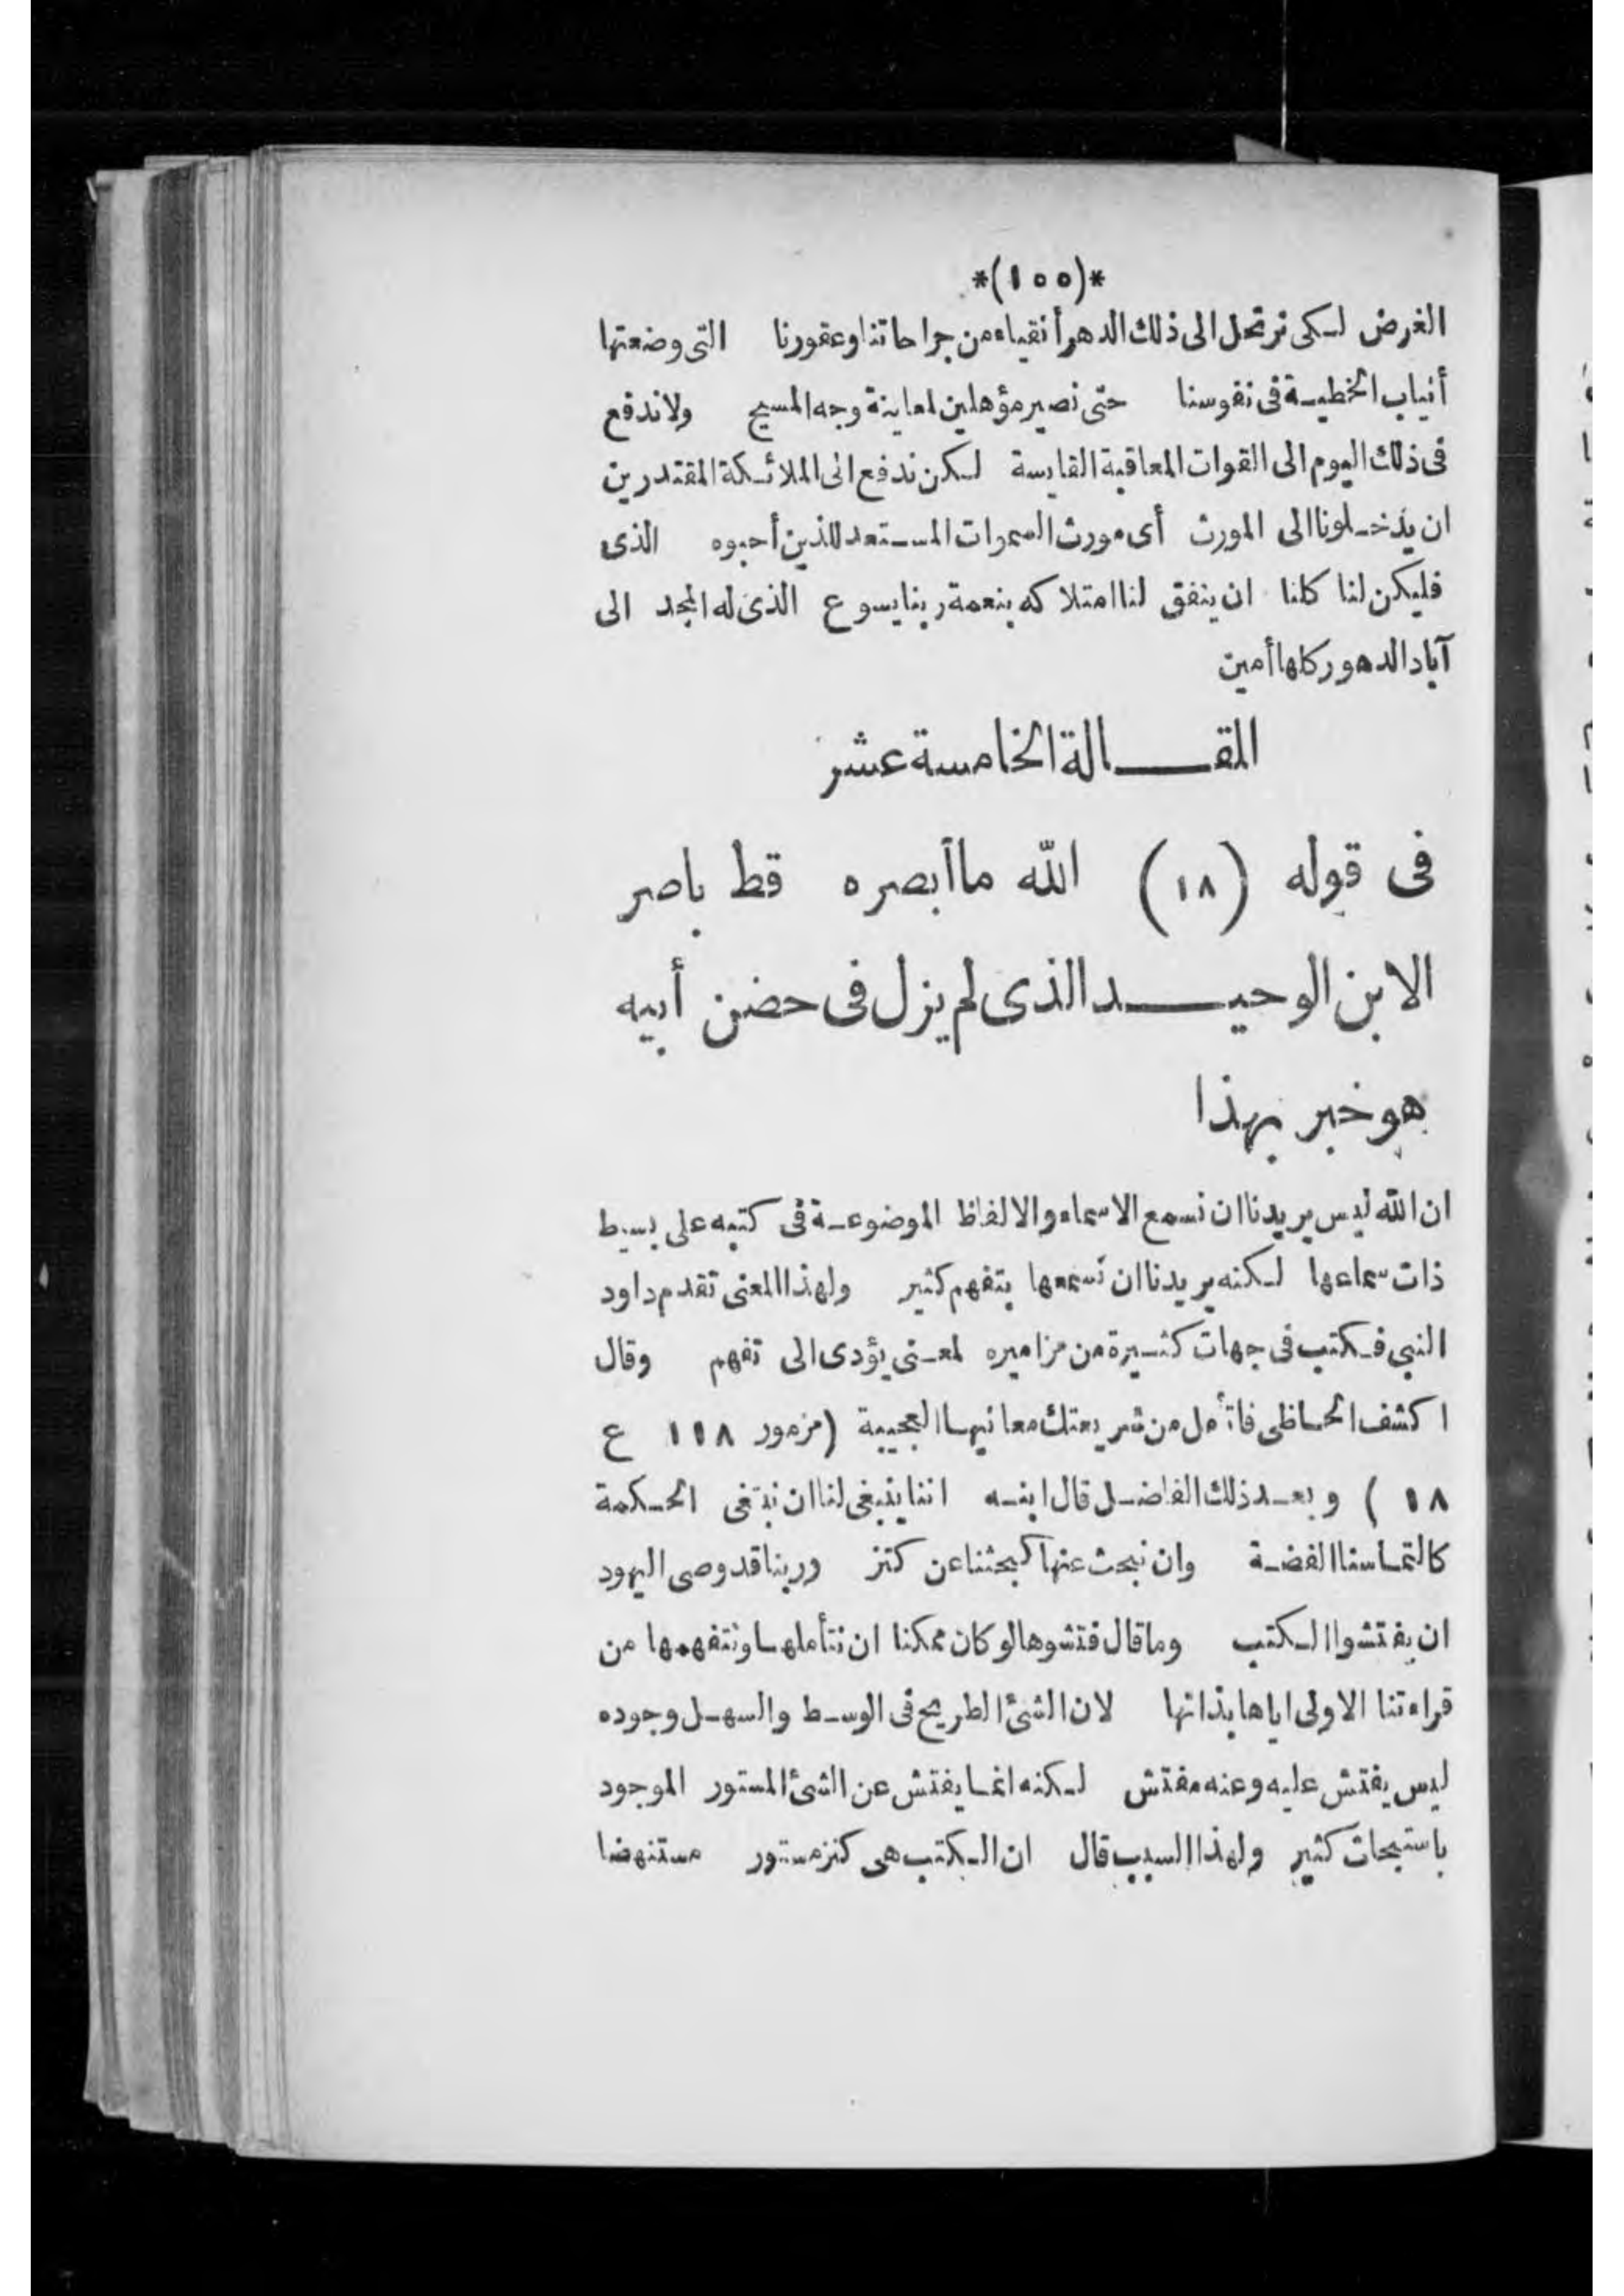 *(١٥٥)*
الغرض لكى نرتحل الى ذلك الدهر أنقياء من جراحاتنا وعقورنا التى وضعتها
أنياب الخطية فى نفوسنا حتى نصير مؤهلين لمعاينة وجه المسيح ولا ندفع
فى ذلك اليوم الى القوات المعاقبة القايسة لكن ندفع الى الملائكة المقتدرين
ان يدخلونا الى المورث أى مورث السموات المستعد للذين أحبوه الذى
فليكن لنا كلنا ان يتفق لنا امتلاكه بنعمة ربنا يسوع الذى له المجد الى
آباد الدهور كلها أمين
المقالة الخامسة عشر
فى قوله (١٨) الله ما أبصره قط باصر
الابن الوحيد الذى لم يزل فى حضن أبيه
هو خبر بهذا
ان الله ليس يريدنا ان نسمع الاسماء والالفاظ الموضوعة فى كتبه على بسيط
ذات سماعها لكنه يريدنا ان نسمعها بتفهم كثير ولهذا المعنى تقدم داود
النبى فكتب فى جهات كثيرة من مزاميره لمعنى يؤدى الى تفهم وقال
اكشف الحاظى فاتأمل من شريعتك معانيها العجيبة (مزمور ١١٨ ع
١٨ ) وبعد ذلك الفاضل قال ابنه اننا ينبغى لنا ان نبتغى الحكمة
كالتماسنا الفضة وان نبحث عنها كبحثنا عن كنز وربنا قد وصى اليهود
ان يفتشوا الكتب وما قال فتشوها لو كان ممكنا ان نتأملها ونتفهمها من
قراءتنا الاولى اياها بذاتها لان الشئ الطريح فى الوسط والسهل وجوده
ليس يفتش عليه وعنه مفتش لكنه انما يفتش عن الشئ المستور الموجود
باستبحاث كثير ولهذا السبب قال ان الكتب هى كنز مستور مستنهضا